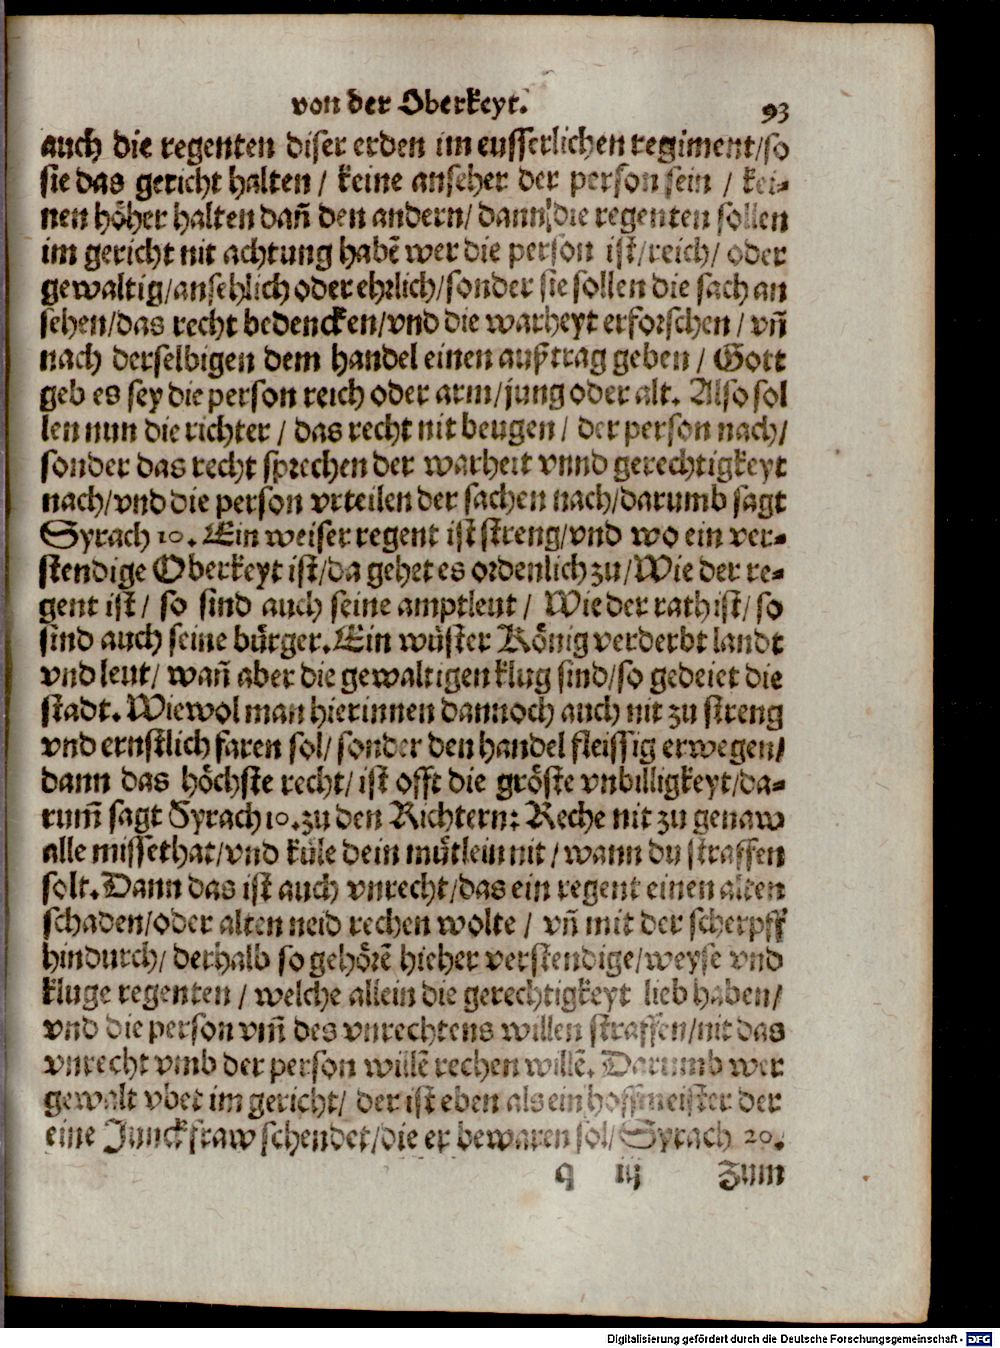 von der Oberkeyt. 93
auch die regenten diser erden im eusserlichen regiment/so
sie das gericht halten / keine anseher der person sein / kei-
nen höher halten dañ den andern/ dann die regenten sollen
im gericht nit achtung habẽ wer die person ist/reich/ oder
gewaltig/ansehlich oder ehrlich/sonder sie sollen die sach an
sehen/das recht bedencken/vnd die warheyt erforschen / vñ
nach derselbigen dem handel einen außtrag geben / Gott
geb es sey die person reich oder arm/jung oder alt. Also sol
len nun die richter / das recht nit beugen / der person nach/
sonder das recht sprechen der warheit vnnd gerechtigkeyt
nach/vnd die person vrteilen der sachen nach/darumb sagt
Syrach 10. Ein weiser regent ist streng/vnd wo ein ver-
stendige Oberkeyt ist/da gehet es ordenlich zu/Wie der re-
gent ist / so sind auch seine amptleut / Wie der rath ist/ so
sind auch seine bürger. Ein wüster König verderbt landt
vnd leut/ wañ aber die gewaltigen klug sind/so gedeiet die
stadt. Wiewol man hierinnen dannoch auch nit zu streng
vnd ernstlich faren sol/ sonder den handel fleissig erwegen/
dann das höchste recht/ ist offt die gröste vnbilligkeyt/da-
rum̃ sagt Syrach 10. zu den Richtern: Reche nit zu genaw
alle missethat/vnd küle dein mütlein nit / wann du straffen
solt. Dann das ist auch vnrecht/das ein regent einen alten
schaden/oder alten neid rechen wolte / vñ mit der scherpff
hindurch/ derhalb so gehörẽ hieher verstendige/weyse vnd
kluge regenten / welche allein die gerechtigkeyt lieb haben/
vnd die person vm̃ des vnrechtens willen straffen/nit das
vnrecht vmb der person willẽ rechen willẽ. Darumb wer
gewalt vbet im gericht/ der ist eben als ein hoffmeister der
eine Junckfraw schendet/die er bewaren sol/ Syrach 20.
q iij Zum
Digitalisierung gefördert durch die Deutsche Forschungsgemeinschaft - DFG